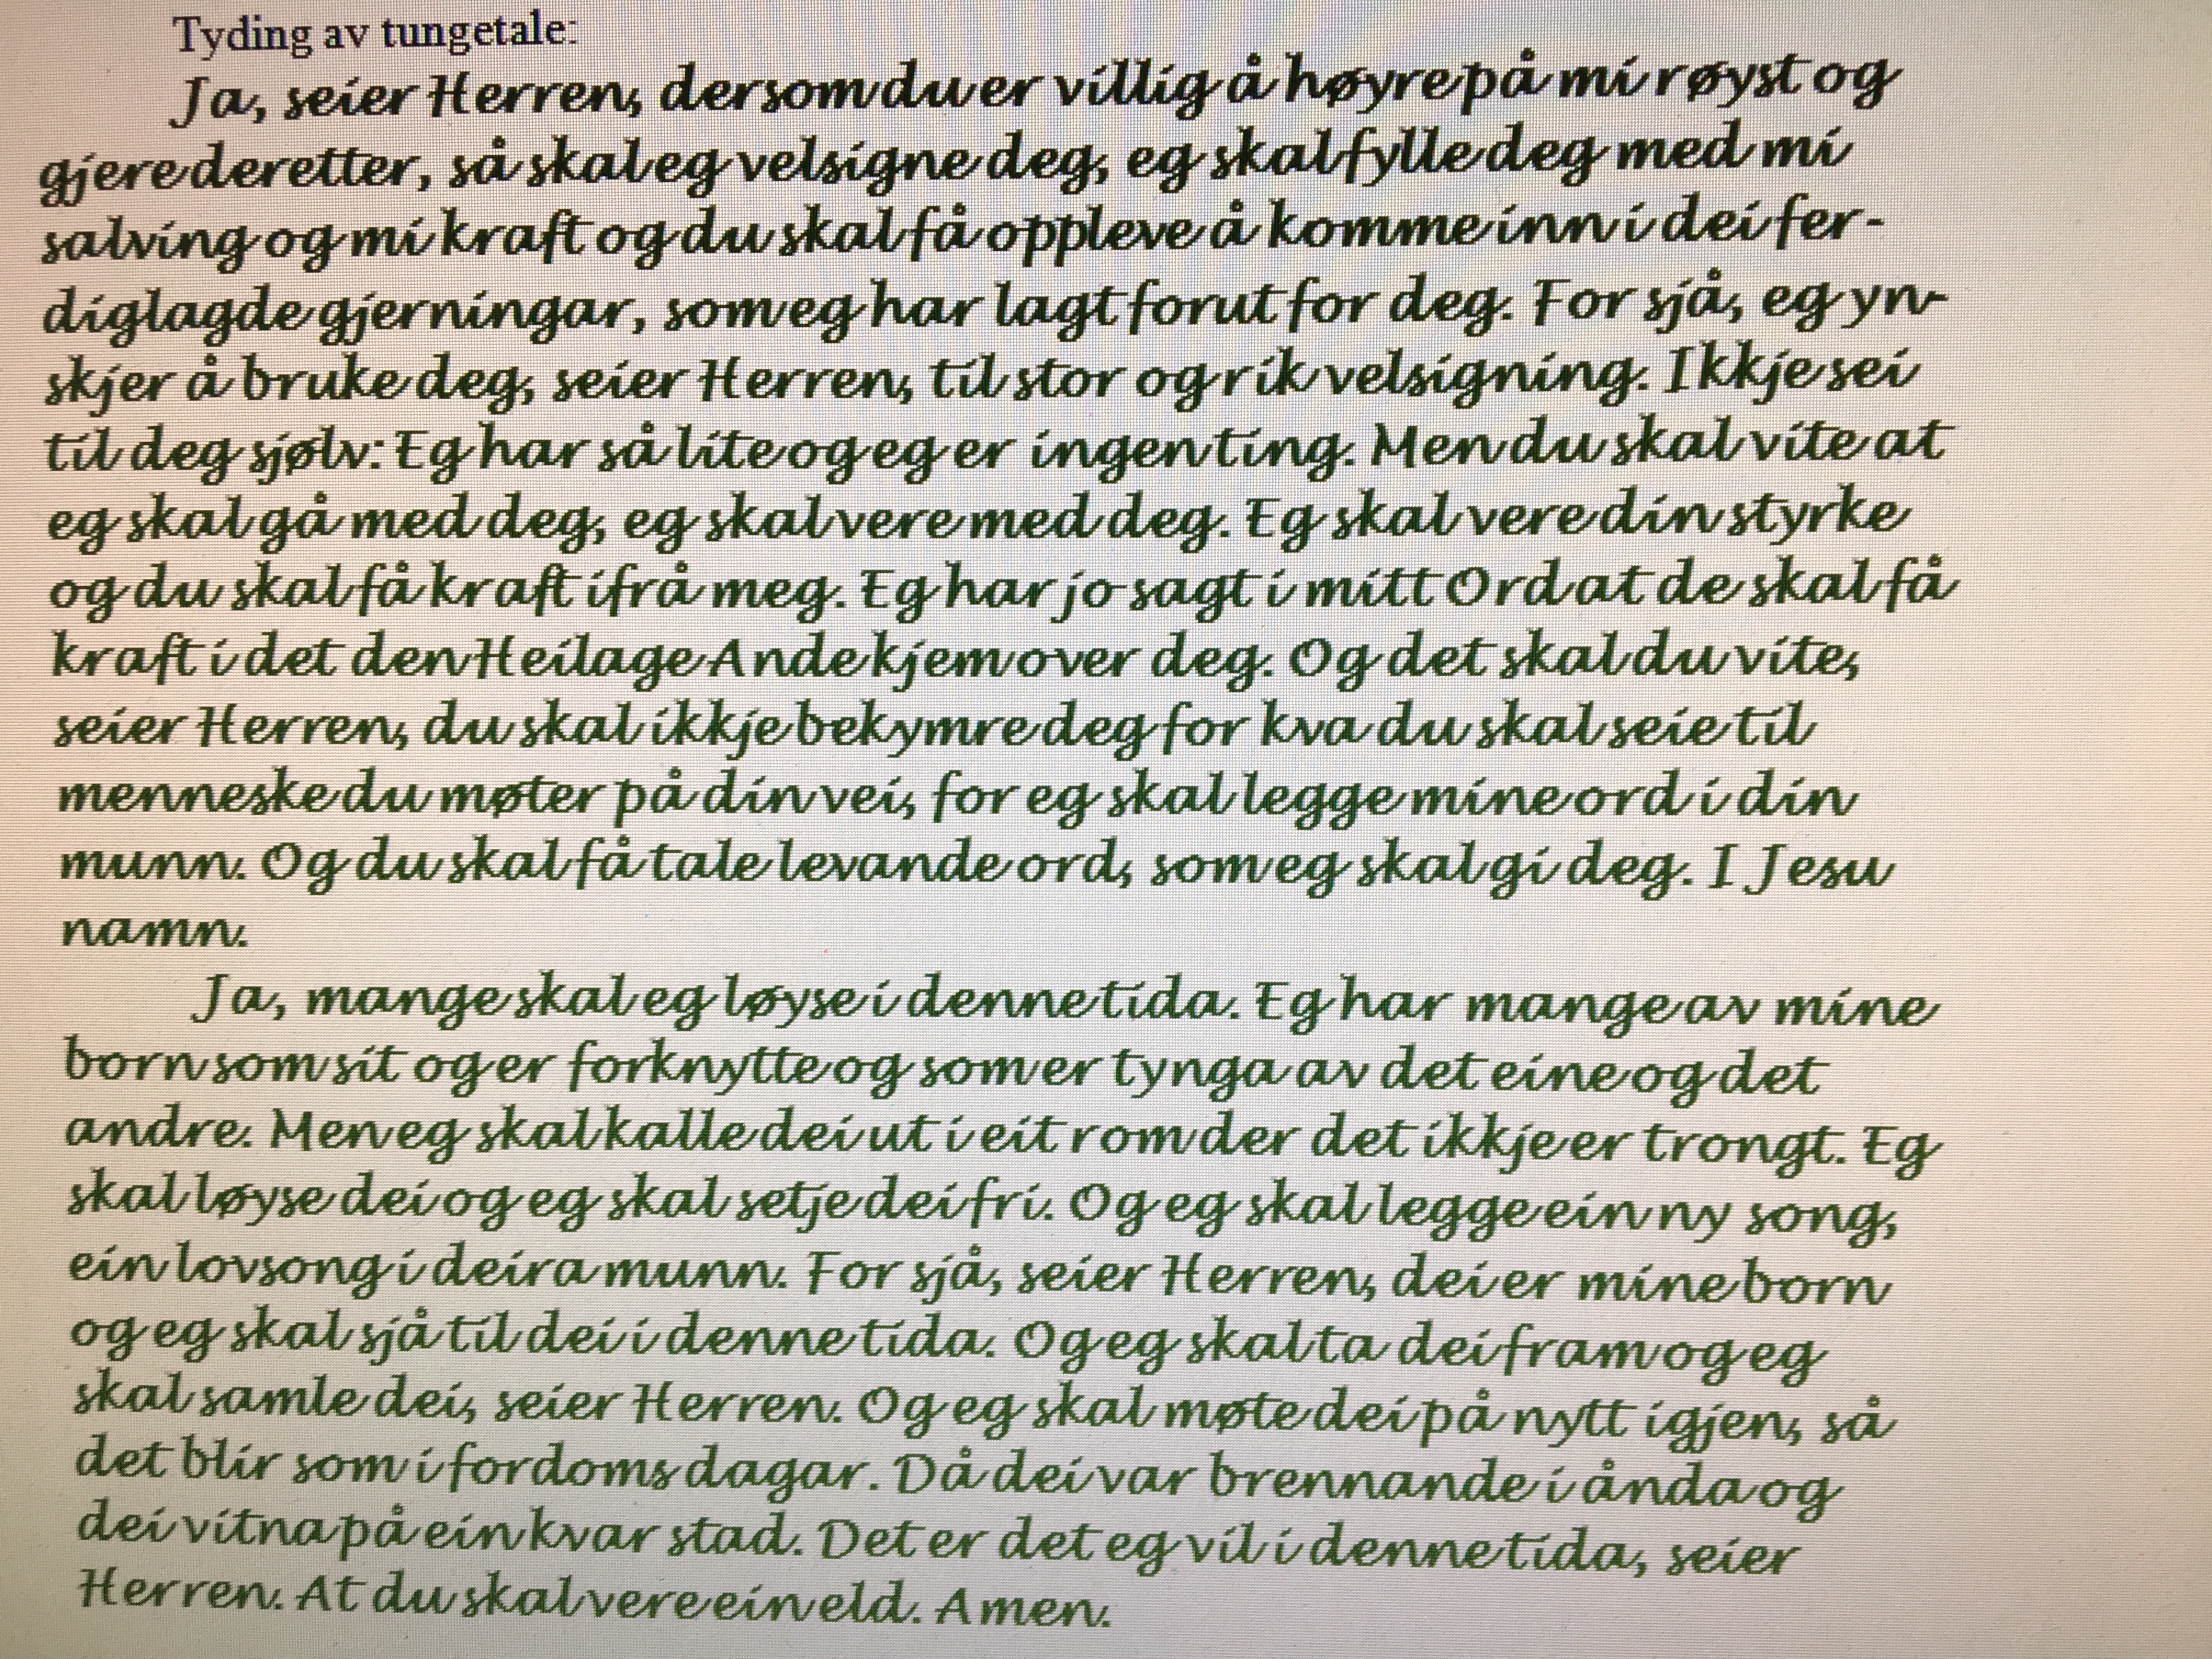 Tyding av tungetale:
Ja, seier Herren, dersom du er villig å høyre på mi røyst og
gjere deretter, så skal eg velsigne deg, eg skal fylle deg med mi
salving og mi kraft og du skal få oppleve å komme inn i dei fer-
diglagde gjerningar, som eg har lagt forut for deg. For sjå, eg yn-
skjer å bruke deg, seier Herren, til stor og rik velsigning. Ikkje sei
til deg sjølv: Eg har så lite og eg er ingenting. Men du skal vite at
eg skal gå med deg, eg skal vere med deg. Eg skal vere din styrke
og du skal få kraft ifrå meg. Eg har jo sagt i mitt Ord at de skal få
kraft i det den Heilage Ande kjem over deg. Og det skal du vite,
seier Herren, du skal ikkje bekymre deg for kva du skal seie til
menneske du møter på din vei, for eg skal legge mine ord i din
munn. Og du skal få tale levande ord, som eg skal gi deg. I Jesu
namn.
Ja, mange skal eg løyse i denne tida. Eg har mange av mine
born som sit og er forknytte og som er tynga av det eine og det
andre. Men eg skal kalle dei ut i eit rom der det ikkje er trongt. Eg
skal løyse dei og eg skal setje dei fri. Og eg skal legge ein ny song,
ein lovsong i deira munn. For sjå, seier Herren, dei er mine born
og eg skal sjå til dei i denne tida. Og eg skal ta dei fram og eg
skal samle dei, seier Herren. Og eg skal møte dei på nytt igjen, så
det blir som i fordoms dagar. Då dei var brennande i ånda og
dei vitna på ein kvar stad. Det er det eg vil i denne tida, seier
Herren. At du skal vere ein eld. Amen.